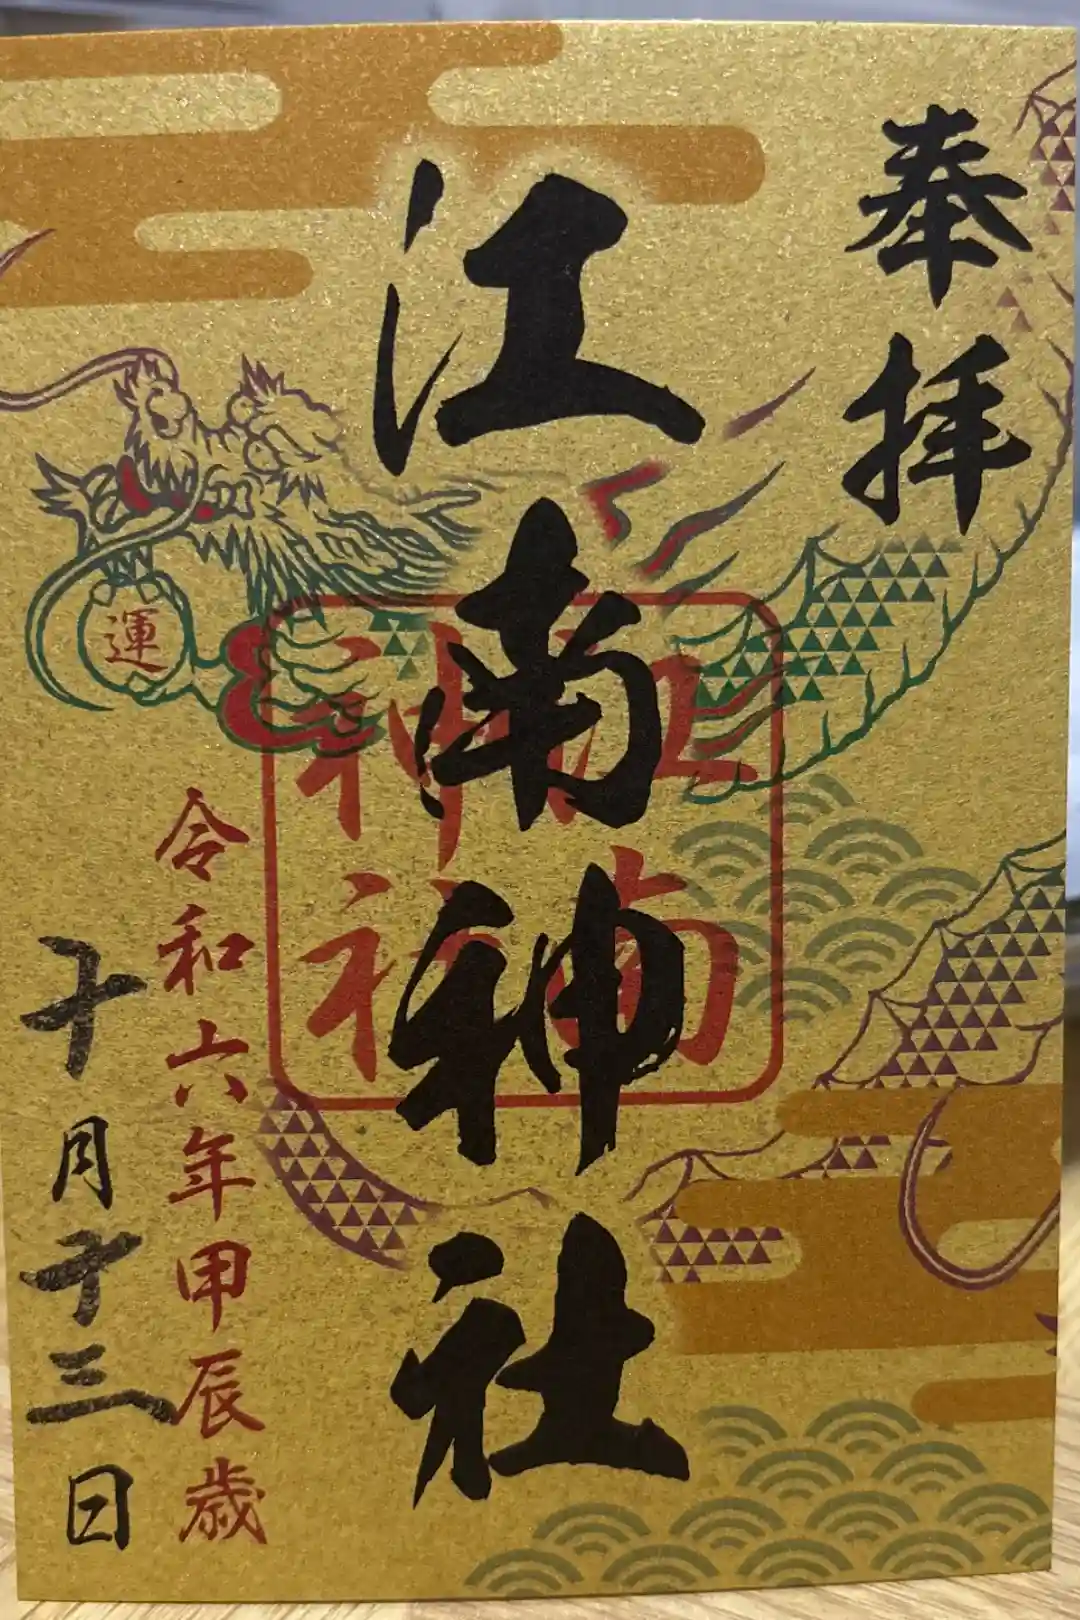 奉拝
江南神社
江南
神社
運
令和六年甲辰歳
十月十三日